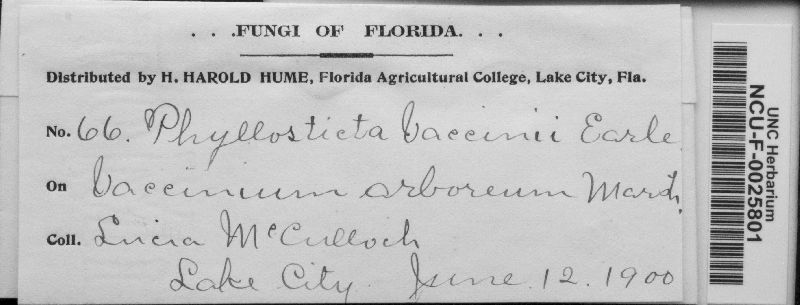 . . .FUNGI OF FLORIDA. . .
Distributed by H. HAROLD HUME, Florida Agricultural College, Lake City, Fla.
No. 66. Phyllosticta Vaccinii Earle.
On Vaccinium arboreum Marsh.
Coll. Lucia McCulloch
Lake City. June 12. 1900
UNC Herbarium
NCU-F-0025801